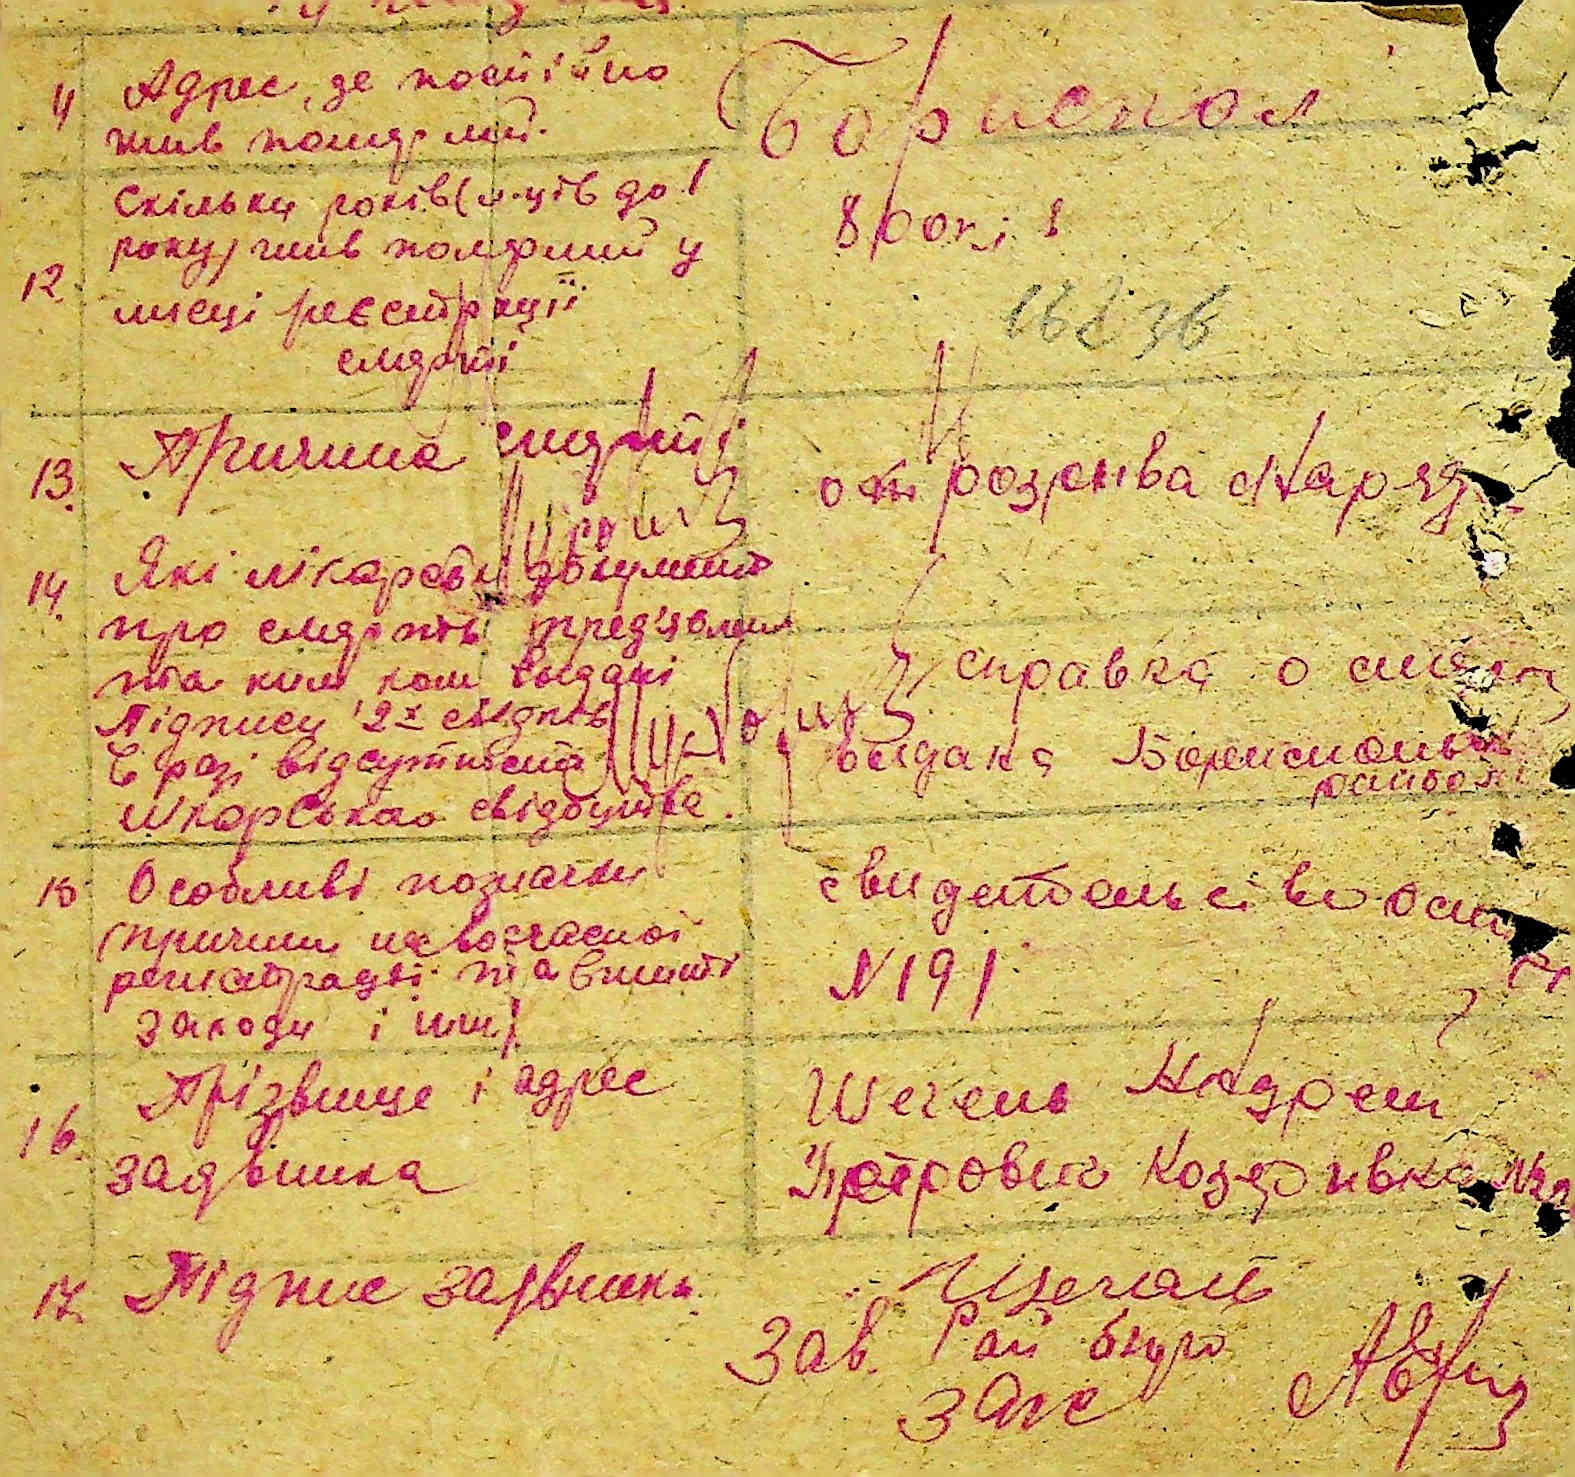 11 Адрес, де постійно
жив помярлий.
Бориспол
12. Скільки років (м-ців до 1
року) жив помярлий у
місці реєстрації
смярті
8 років
13. Причина смярті
от розрива снаряд
14. Які лікарські документ
про смярть
та ким, коли видані
Підписи 2х свідків
в разі відсутності
лікарського свідоцтва.
справка о смярти
видана Бориспольск
райбол
15 Особливі позначки
(причини невочасної
регистрації та вжиті
заходи і инш)
свидетельство о см
N 191
16. Прізвище і адрес
заявника
Андреи
Петрович
17. Підпис заявника
Зав. Рай бюро
загс